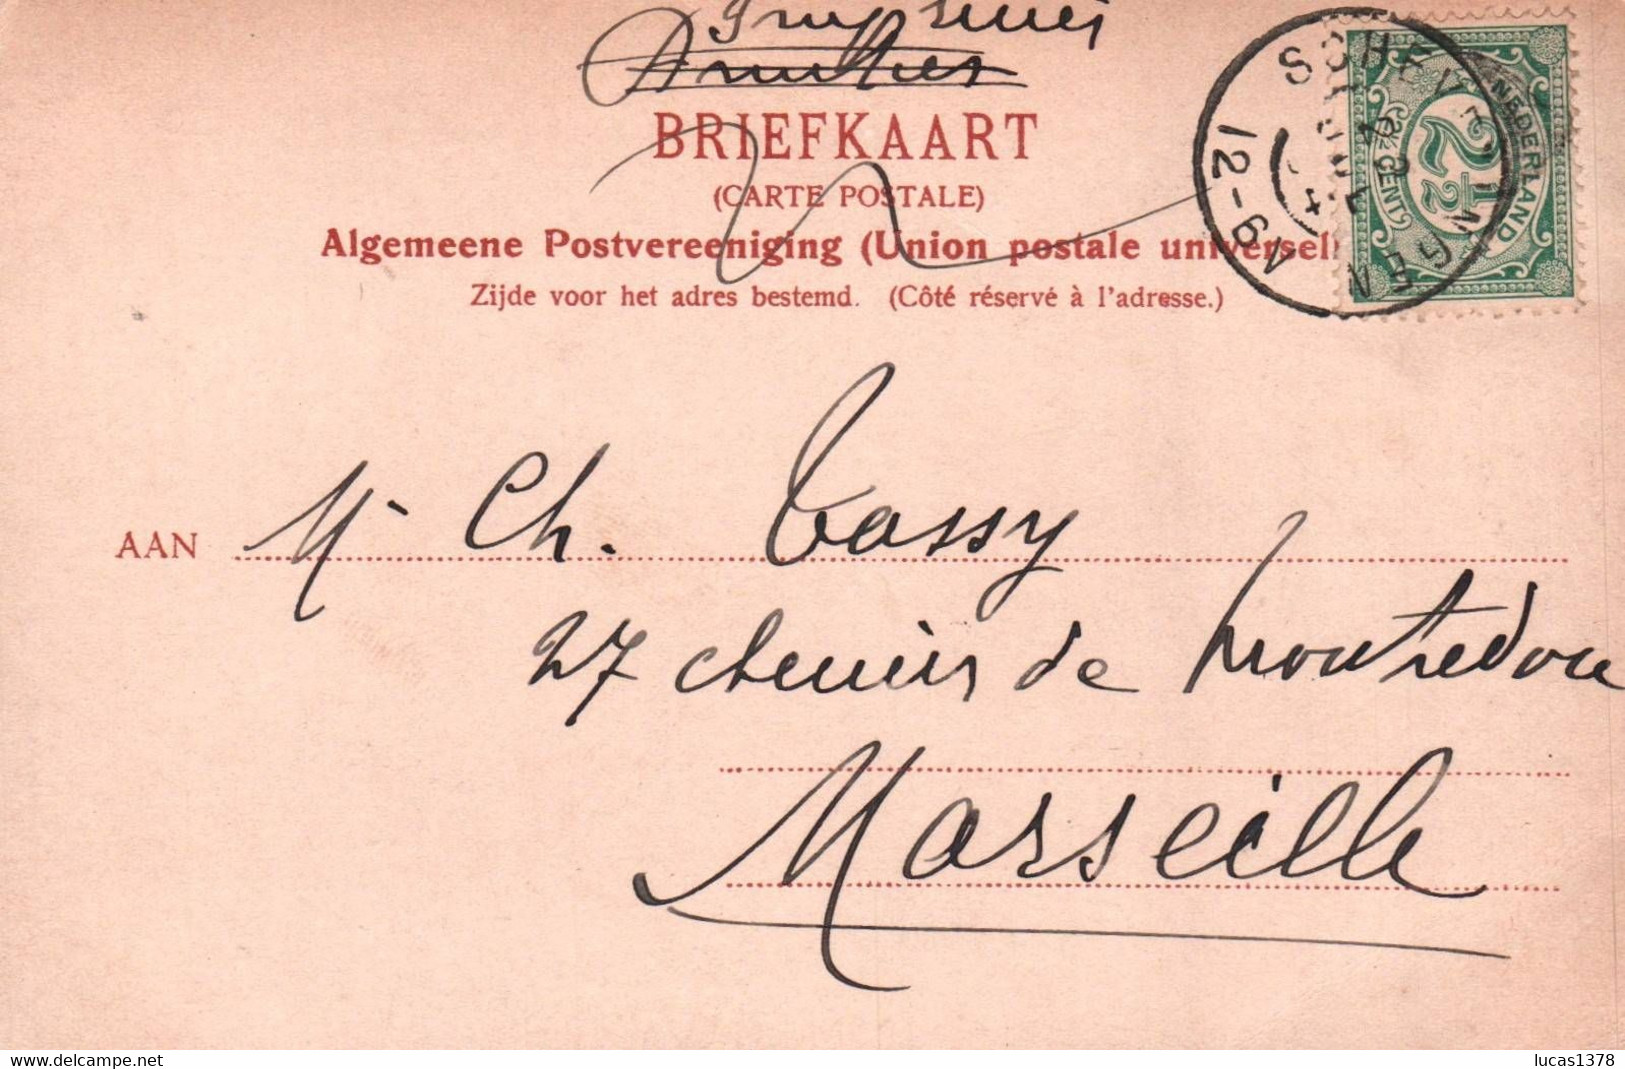 Imprimés
BRIEFKAART
(CARTE POSTALE)
Algemeene Postvereeniging (Union postale universel
Zijde voor het adres bestemd. (Côté réservé à l'adresse.)
NEDERLAND
2½
2½ CENT
SCHEVENINGEN
12-6N
AAN Mr Ch. Tassy
27 chemin de Montredon
Marseille
delcampe.net
lucas1378